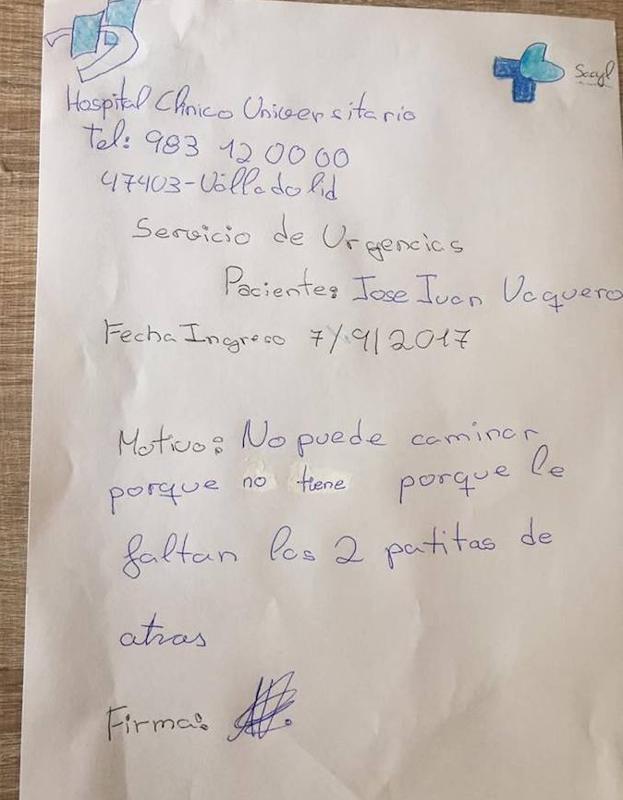 Sacyl
Hospital Clínico Universitario
Tel: 983 12 00 00
47403-Válladolid
Servicio de Urgencias
Paciente: Jose Juan Vaquero
Fecha Ingreso 7/9/2017
Motivo: No puede caminar
porque no tiene porque le
faltan las 2 patitas de
atras
Firma: